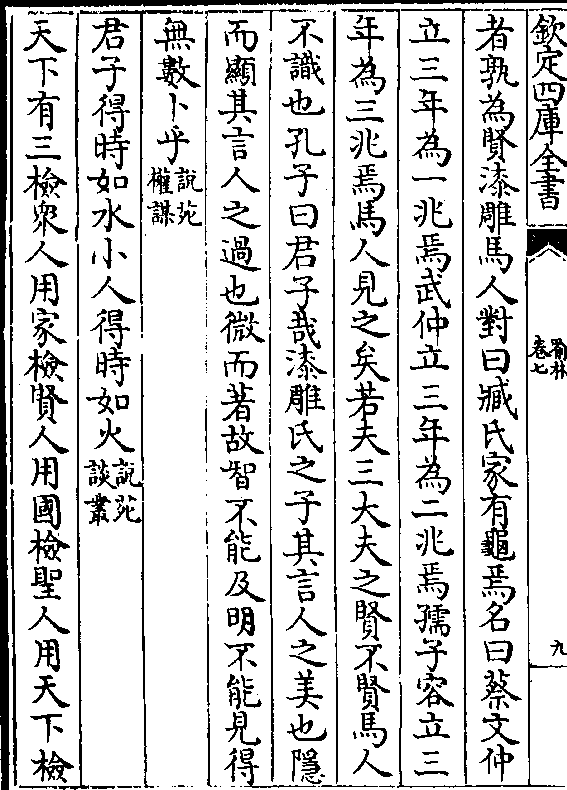 欽定四庫全書
喻林
卷七
九
者孰為賢漆雕馬人對曰臧氏家有龜焉名曰蔡文仲
立三年為一兆焉武仲立三年為二兆焉孺子容立三
年為三兆焉馬人見之矣若夫三大夫之賢不賢馬人
不識也孔子曰君子哉漆雕氏之子其言人之美也隱
而顯其言人之過也微而著故智不能及明不能見得
無數卜乎說苑權謀
君子得時如水小人得時如火說苑談叢
天下有三檢衆人用家檢賢人用國檢聖人用天下檢